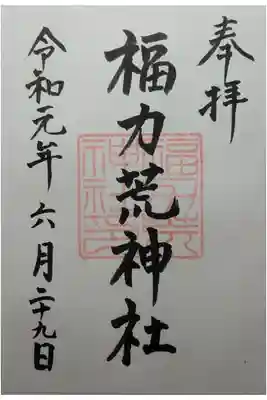 奉拝
福力荒神社
令和元年六月二十九日